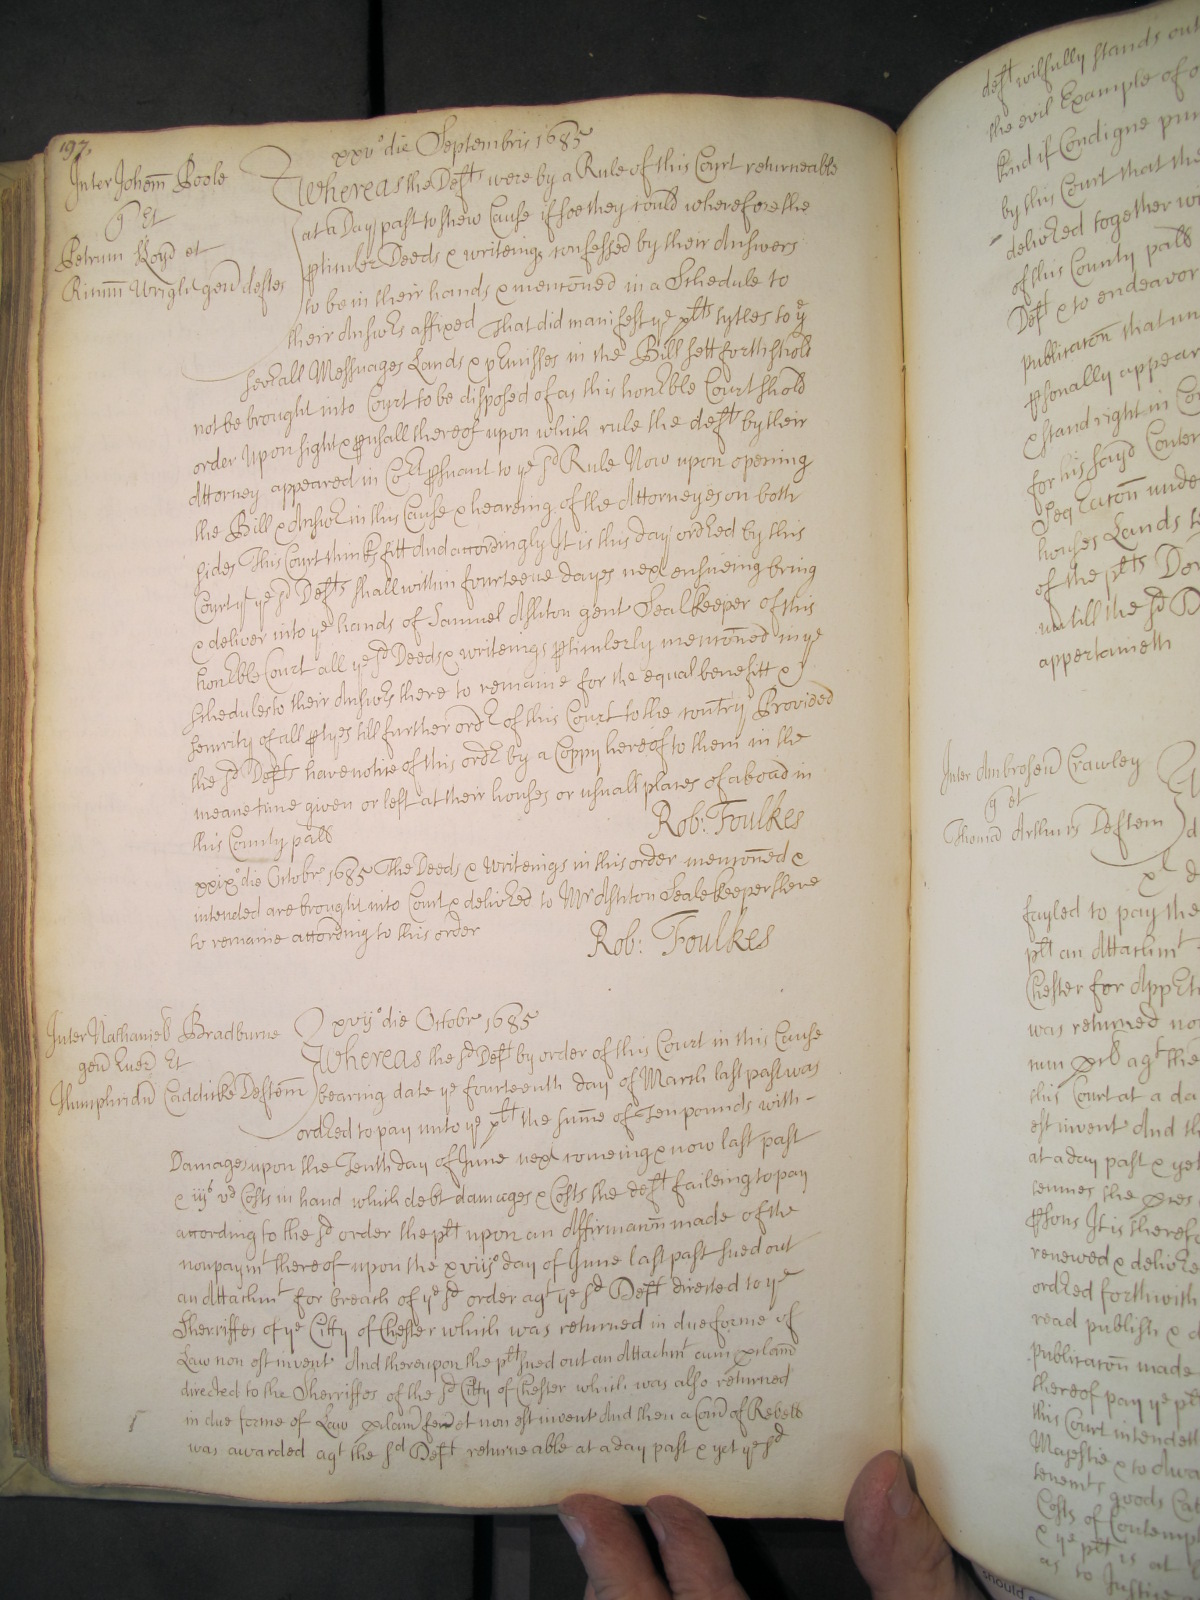 197.
xxv° die Septembris 1685
Inter Johem Poole
q et
Petrum Loyd et
Ricum Wright gen deftes
Whereas the Defts were by a Rule of this Court returneable
at a Day past to shew Cause if soe they could wherefore the
pticuler Deeds & writeings confessed by their Answers
to be in their hands & menconed in a Schedule to
their Answers affixed That did manifest ye plts tytles to ye
severall Messuages Lands & premisses in the Bill sett forth shold
not be brought into Court to be disposed of as this honble Court shold
order Upon sight & perusall thereof upon which rule the deft by their
Attorney appeared in Cort psuant to ye sd Rule Now upon opening
the Bill & Answer in this Cause & heareing of the Attorneyes on both
sides This Court thinks fitt And accordingly It is this day ordred by this
Court yt ye sd Defts shall within fourteene dayes next ensueing bring
& deliver into ye hands of Samuel Ashton gent Sealkeeper of this
honble Court all ye sd Deeds & writeings pticulerly menconed in ye
schedules to their Answers there to remaine for the equal benefitt &
security of all ptyes till further order of this Court to the contry Provided
the sd Defts have notice of this order by a Coppy hereof to them in the
meane time given or left at their houses or usuall places of aboad in
this County pall
Rob: Foulkes
xxix° die Octobr 1685 The Deeds & Writeings in this order menconed &
intended are brought into Court & delivred to Mr Ashton Sealekeeper there
to remaine according to this order
Rob: Foulkes
xvij° die Octobr 1685
Inter Nathaniel Bradburne
gen quer Et
Humphridu Caddicke Deftem
Whereas the sd Deft by order of this Court in this Cause
bearing date ye fourteenth day of March last past was
ordred to pay unto ye plt the sume of Ten pounds with
Damages upon the Tenth day of June next comeing & now last past
& iijs vd Costs in hand which debt damages & Costs the deft faileing to pay
according to the sd order the plt upon an Affirmacon made of the
nonpaymt thereof upon the xviij° day of June last past sued out
an Attachmt for breach of ye sd order agt ye sd Deft directed to ye
Sherriffes of ye Citty of Chester which was returned in due forme of
Law non est invent And thereupon the plt sued out an Attachmt cum proclam
directed to the Sherriffes of the sd Citty of Chester which was also returned
in due forme of Law proclam et non est invent And then a Com of Rebell
was awarded agt the sd Deft returneable at a day past & yet ye sd
deft wilfully stands out
the evil Example of
kind if Condigne
by this Court that the
delivred together
of this County pall
Deft & to endeavor
publicacon that
psonally appear
& stand right in
for his sayd
Seqracon under
houses Lands
of the plts
untill the sd
appertaineth
Inter Ambroseu Crawley
q et
Thoma Arthurs Deftem
fayled to pay the
plt an Attachmt
Chester for
was returned
cum agt the
this Court at a da
est invent And th
at a day past & yet
tennes the
psons It is
renewed &
ordred forthwith
read publish &
publicacon made
thereof pay ye plt
this Court
Majestie & to
tenemts goods
Costs of Contempt
& ye plt is at
as to Justice
should